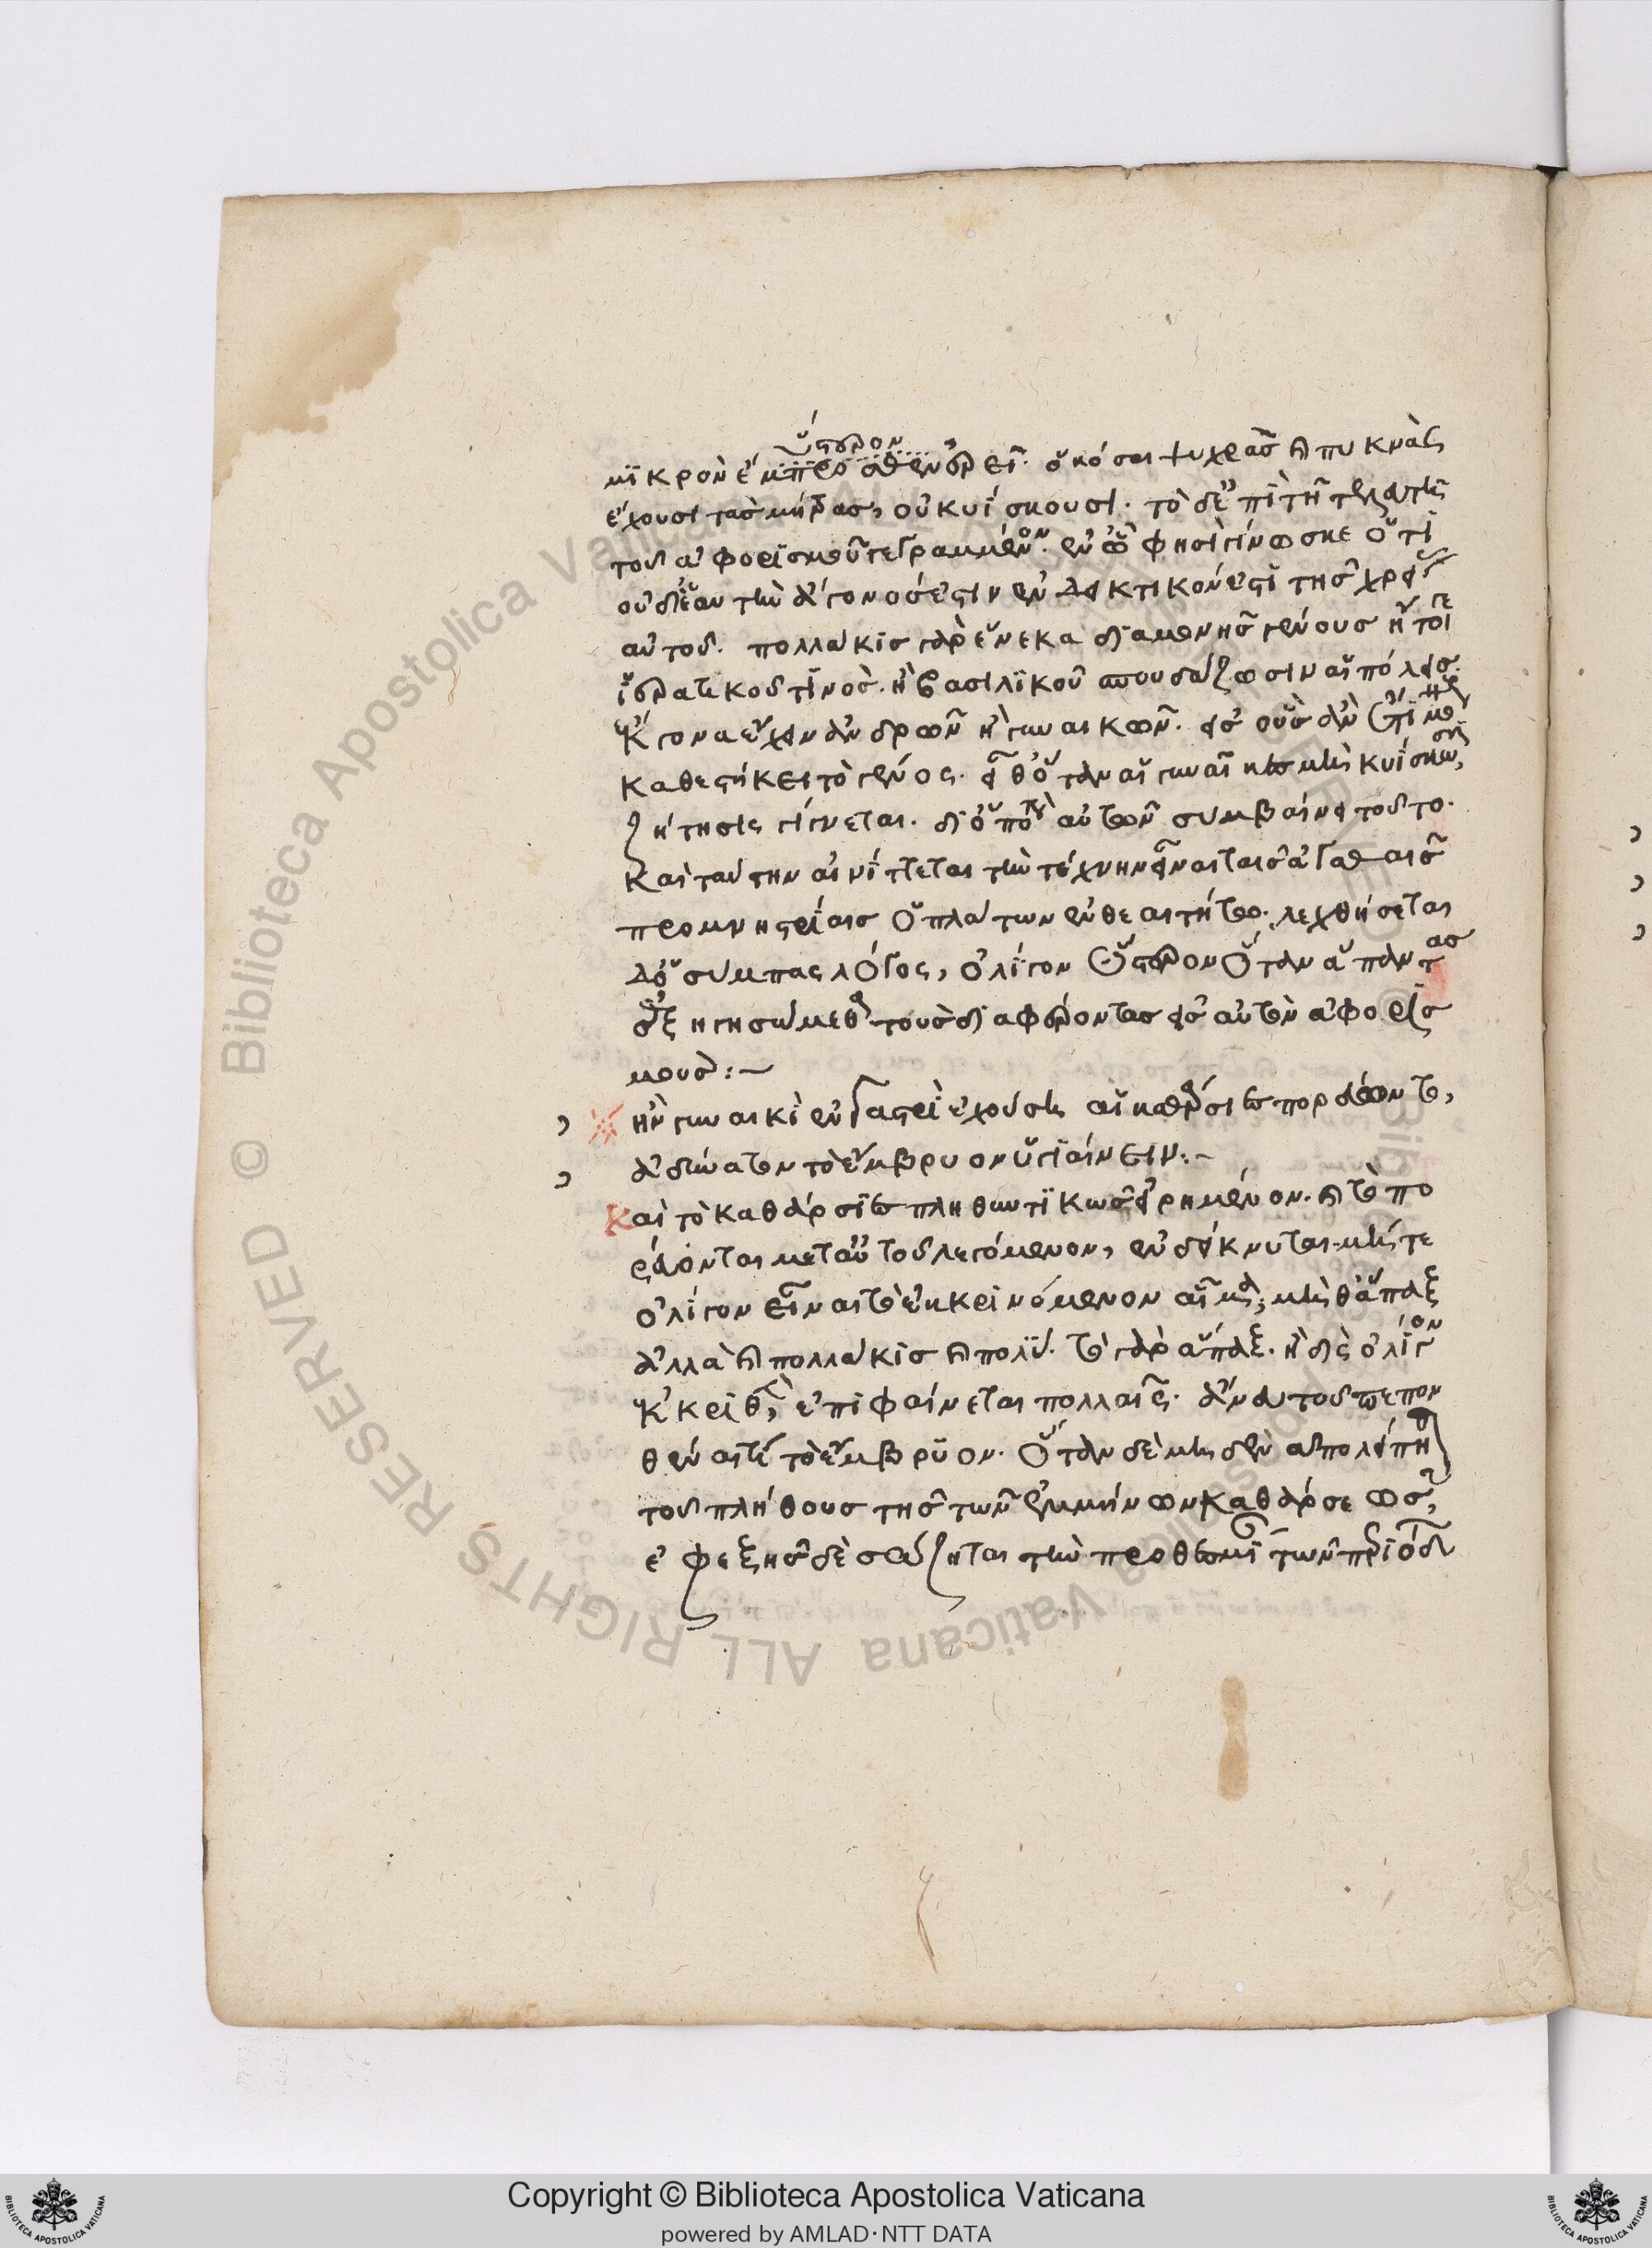 ὕστερον
μικρὸν ἔμπροσθεν ἐρεῖ. ὁκόσαι ψυχρὰς καὶ πυκνὰς
ἔχουσι τὰς μήτρας, οὐ κυΐσκουσι. τὸ δ' ἐπὶ τῇ τελευτῇ
τοῦ ἀφορισμοῦ γεγραμμένον. ἐν ᾧ φησὶ γίνωσκε ὅτι
οὐ διὰ τὴν ἄγονος ἐστιν ἐνδεικτικόν ἐστι τῆς χρεί
αὐτοῦ. πολλάκις γὰρ ἕνεκα διαμονῆς γένους ἤτοι γε
ἱερατικοῦ τινὸς. ἢ βασιλικοῦ σπουδάζωσιν αἱ πόλεις
ἔκγονα ἔχειν ἀνδρῶν ἢ γυναικῶν. εἰς οὓς ἂν
καθεστήκει τὸ γένος. εἶθ' ὅταν αἱ γυναῖκες μὴ κυΐσκωσι,
ζήτησις γίνεται. δι' ὁπότερον αὐτῶν συμβαίνει τοῦτο.
καὶ ταύτην αἰνίττεται τὴν τέχνην εἶναι ταῖς ἀγαθαῖς
προμνηστρίαις ὁ πλάτων ἐν θεαιτήτῳ. λεχθήσεται
δ' ὁ σύμπας λόγος, ὀλίγον ὕστερον ὅταν ἅπαντας
ἐξηγησώμεθα τοὺς διαφέροντας εἰς αὐτὸν ἀφορισ
μούς:~
ἢν γυναικὶ ἐν γαστρὶ ἐχούσῃ αἱ καθάρσιες πορεύωνται,
ἀδύνατον τὸ ἔμβρυον ὑγιαίνειν:~
Καὶ τὸ καθάρσιες πληθυντικῶς εἰρημένον. καὶ τὸ πο
ρεύονται μετ' αὐτοῦ λεγόμενον, ἐνδείκνυται μήτε
ὀλίγον εἶναι τὸ ἐκκρινόμενον αἷμα, μήθ' ἅπαξ
ἀλλὰ καὶ πολλάκις καὶ πολύ. τὸ γὰρ ἅπαξ. ἢ δὶς ὀλίγον
ἐκκριθῆναι, ἐπιφαίνεται πολλαῖς. ἄνευ τοῦ πεπον
θέναι τί τὸ ἔμβρυον. ὅταν δὲ μηδὲν ἀπολείπῃ
τοῦ πλήθους τῆς τῶν ἐμμήνων καθάρσεως,
ἐφεξῆς δὲ σώζηται τὴν προθεσμίαν τῶν περιόδων